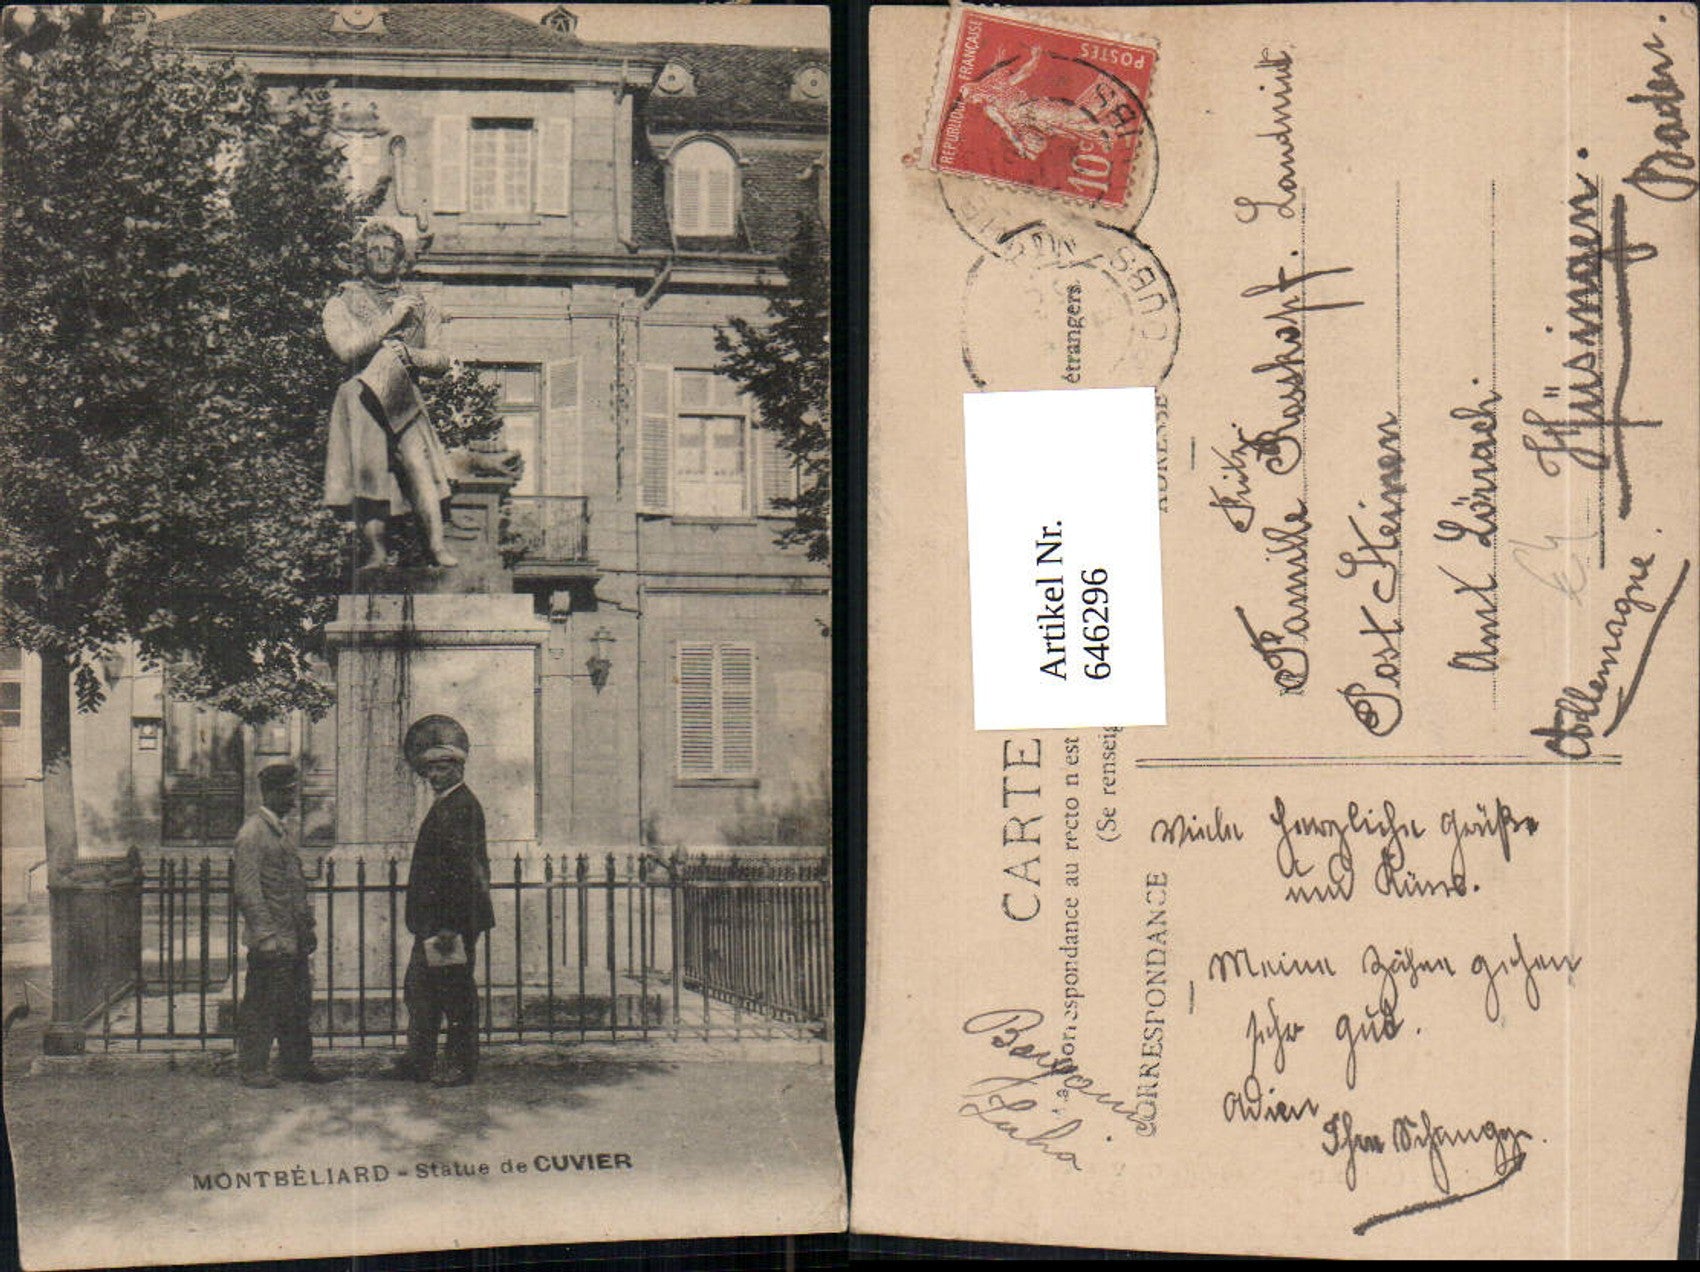 MONTBÉLIARD - Statue de CUVIER
REPUBLIQUE FRANÇAISE
POSTES
10c
DOUBS
Artikel Nr.
646296
CARTE
La correspondance au recto n'est
étrangers.
(Se renseig
CORRESPONDANCE
ADRESSE
Familie Fritz Roskopf. Landwirt
Post Steinen
Amt Lörrach
Hüsingen.
Baden.
Allemagne.
Viele herzliche Grüße
und Küsse.
Meine Zähne gehen
sehr gut.
Adieu